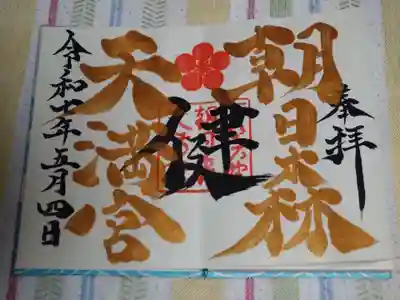 奉拝
朝日森
健
天満宮
令和七年五月四日